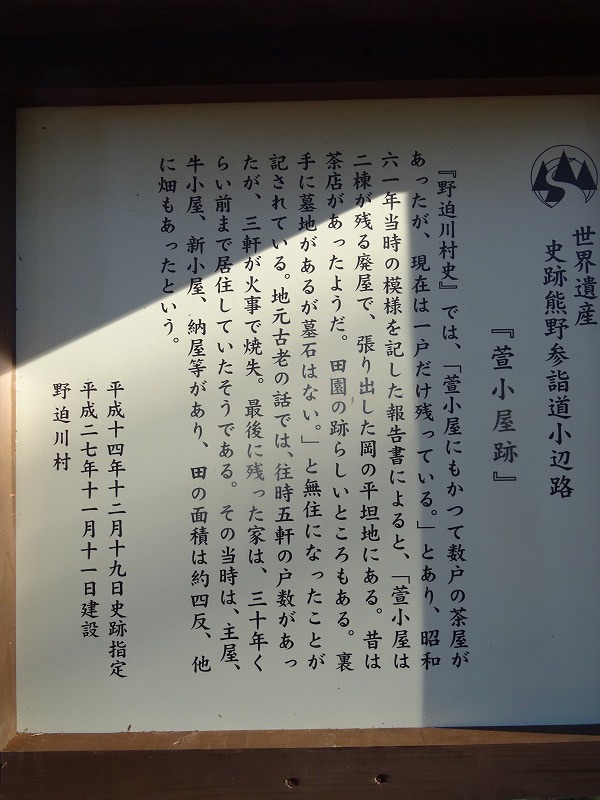 世界遺産
史跡熊野参詣道小辺路
『萱小屋跡』
『野迫川村史』では、「萱小屋にもかつて数戸の茶屋が
あったが、現在は一戸だけ残っている。」とあり、昭和
六一年当時の模様を記した報告書によると、「萱小屋は
二棟が残る廃屋で、張り出した岡の平坦地にある。昔は
茶店があったようだ。田園の跡らしいところもある。裏
手に墓地があるが墓石はない。」と無住になったことが
記されている。地元古老の話では、往時五軒の戸数があっ
たが、三軒が火事で焼失。最後に残った家は、三十年く
らい前まで居住していたそうである。その当時は、主屋、
牛小屋、新小屋、納屋等があり、田の面積は約四反、他
に畑もあったという。
平成十四年十二月十九日史跡指定
平成二七年十一月十一日建設
野迫川村